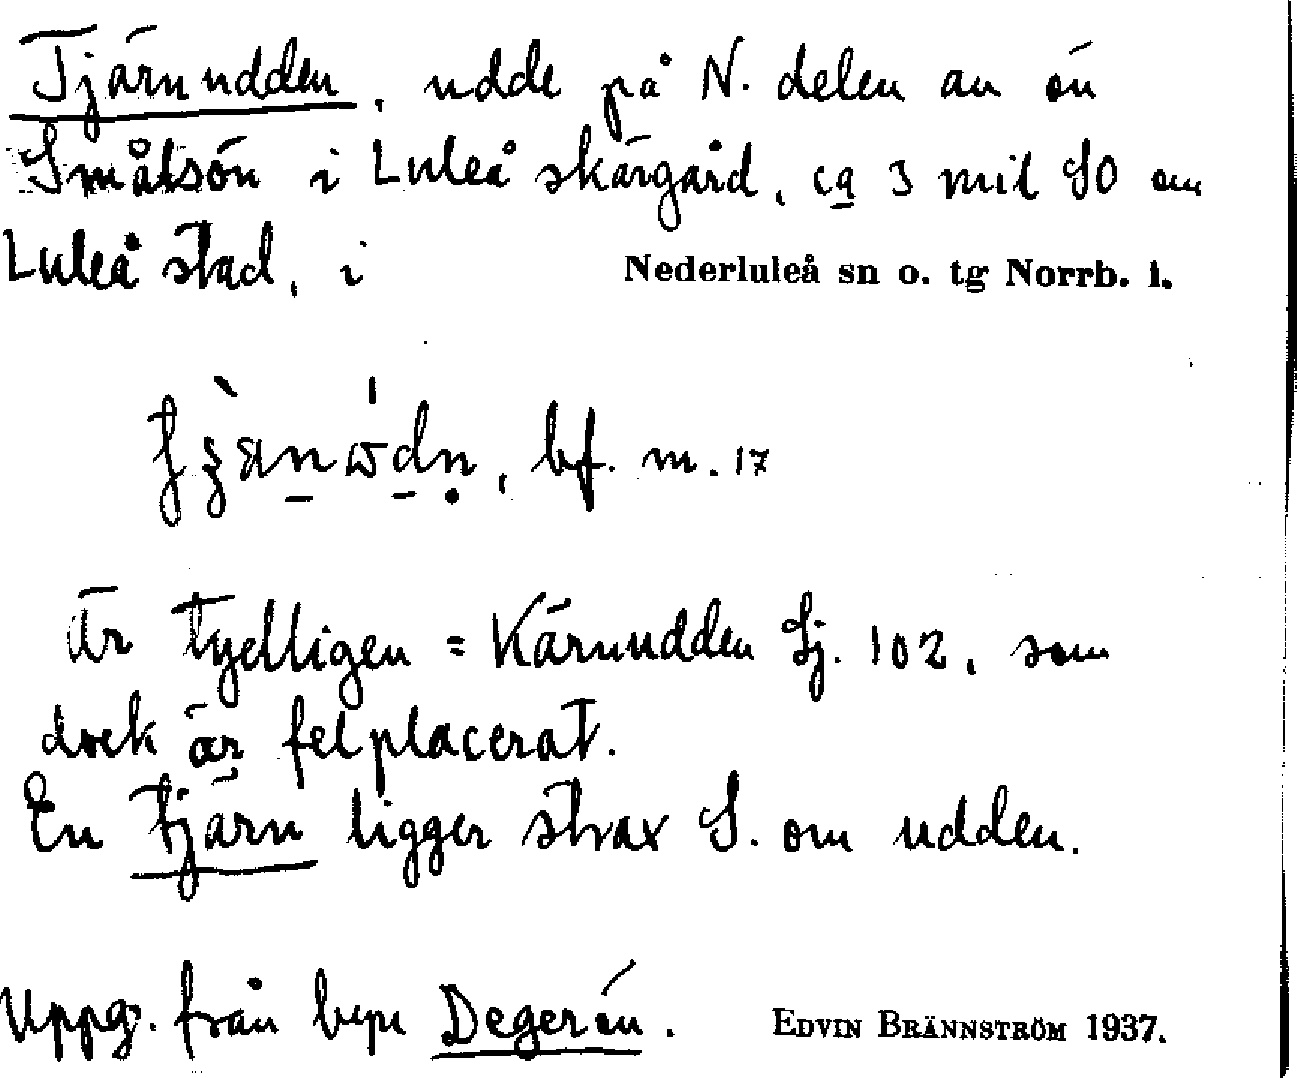 Tjärnudden, udde på N. delen av ön
Småtsön i Luleå skärgård, ca 3 mil SO om
Luleå stad, i Nederluleå sn o. tg Norrb. l.
bf. m. 17
Är tydligen = Kärnudden Sj. 102, som
dock är felplacerat.
En tjärn ligger strax S. om udden.
Uppg. från byn Degerön. EDVIN BRÄNNSTRÖM 1937.